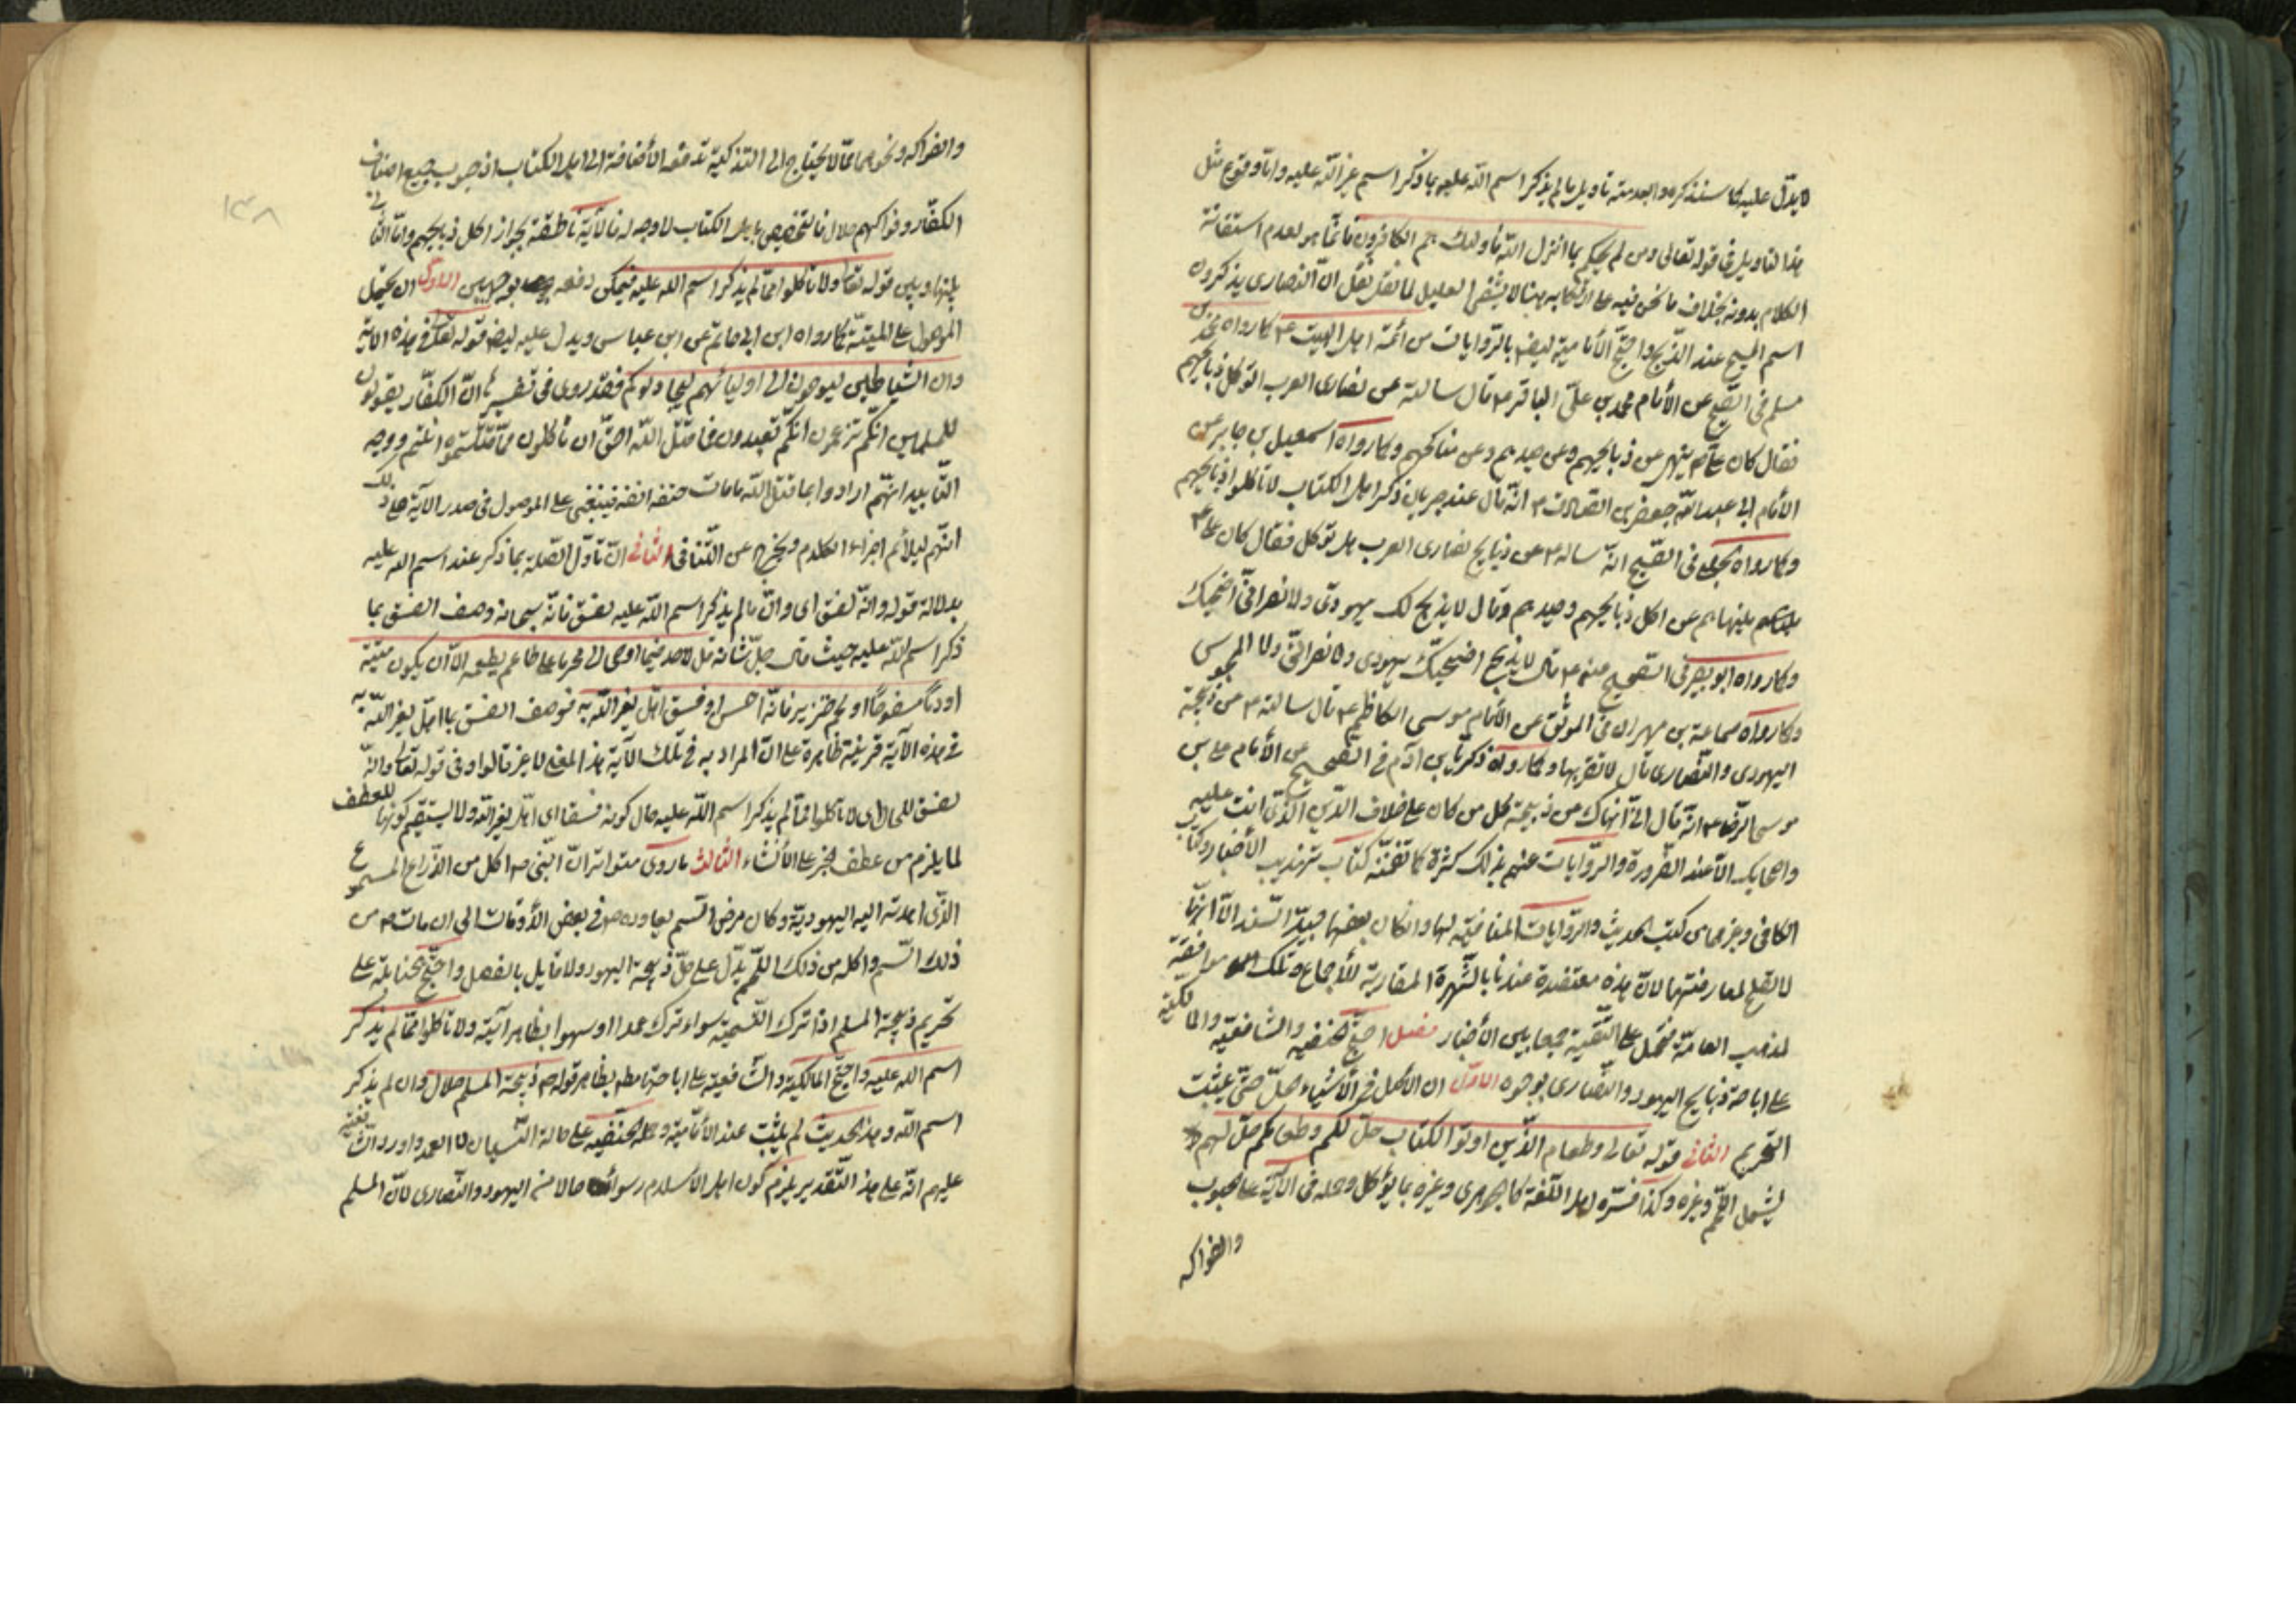 لا يدل عليه كما سنذكره وما ابعد منه تاويل ما لم يذكر اسم الله عليه بما ذكر اسم غير الله عليه واما وقوع مثل
هذا التاويل في قوله تعالى ومن لم يحكم بما انزل الله فأولئك هم الكافرون فانما هو لعدم استقامة
الكلام بدونه بخلاف ما نحن فيه على ان ارتكابه هنا لا يشفي العليل لما نقل ان النصارى يذكرون
اسم المسيح عند الذبح واحتج الأمامية ايضا بالروايات من ائمة اهل البيت ع كما رواه محمد بن
مسلم في الصحيح عن الأمام محمد بن علي الباقر ع قال سالته عن نصارى العرب اتؤكل ذبايحهم
فقال كان علي ع ينهى عن ذبايحهم وعن صيدهم وعن مناكحهم وكما رواه اسمعيل بن جابر عن
الأمام ابي عبد الله جعفر بن الصادق ع انه قال عند جريان ذكر اهل الكتاب لا تاكلوا ذبايحهم
وكما رواه الحلبي في الصحيح انه ساله ع عن ذبايح نصارى العرب هل تؤكل فقال كان علي ع
ينهاهم عن اكل ذبايحهم وصيدهم وقال لا يذبح لك يهودي ولا نصراني اضحيتك
وكما رواه ابو بصير في الصحيح عنه ع قال لا يذبح اضحيتك يهودي ولا نصراني ولا المجوسي
وكما رواه سماعة بن مهران في الموثق عن الأمام موسى الكاظم ع قال سالته ع من ذبيحة
اليهودي والنصارى قال لا تقربها وكما رواه زكريا بن ادم في الصحيح عن الأمام علي بن
موسى الرضا ع انه قال اني انهاك من ذبيحة كل من كان على خلاف الدين الذي انت عليه
واصحابك الا عند الضرورة والروايات عنهم بذلك كثيرة كما تضمنه كتاب تهذيب الأخبار وكتاب
الكافي وغيرهما من كتب الحديث والروايات المنافية لها وانكان بعضها جيد السند الا انها
لا تصلح لمعارضتها لان هذه معتضدة عندنا بالشهرة المقاربة للأجماع وتلك موافقة
لمذهب العامة فتحمل على التقية جمعا بين الأخبار فصل احتج الحنفيه والشافعيه والمالكية
على اباحة ذبايح اليهود والنصارى بوجوه الاول ان الاصل في الأشياء الحل حتى يثبت
التحريم الثاني قوله تعالى وطعام الذين اوتوا الكتاب حل لكم وطعامكم حل لهم
يشمل اللحم وغيره وكذا فسره اهل اللغة كالجوهري وغيره بما يؤكل وحمله في الآية على الحبوب
والفواكه
والفواكه ونحوهما مما لا يحتاج الى التذكية تدفعه الأضافة الى اهل الكتاب اذ حبوب جميع اصناف
الكفار وفواكههم حلال فالتخصيص باهل الكتاب لا وجه له فالآية ناطقة بجواز اكل ذبايحهم واما التنافي
بينها وبين قوله تعالى ولا تاكلوا مما لم يذكر اسم الله عليه فيمكن دفعه بوجهين الاول ان يحمل
الموصول على الميتة كما رواه ابن ابي حاتم عن ابن عباس ويدل عليه ايضا قوله تعالى في هذه الآية
وان الشياطين ليوحون الى اوليائهم ليجادلوكم فقد روى في تفسيره ان الكفار يقولون
للمسلمين انكم تزعمون انكم تعبدون فما قتل الله احق ان تاكلون مما قتلتموه انتم ووجه
التاييد انهم ارادوا بما قتل الله ما مات حتف انفه فينبغي على الموصول في صدر الآية على ذلك
ايضا ليلائم اجزاء الكلام ويخرج عن التنافي الثاني ان تاول الصلة بما ذكر عند اسم الله عليه
بدلالة قوله وانه لفسق اي وان ما لم يذكر اسم الله عليه لفسق فانه سبحانه وصف الفسق بما
ذكر اسم الله عليه حيث قال جل شانه قل لا اجد فيما اوحى الى محرما على طاعم يطعمه الا ان يكون ميتة
او دما مسفوحا او لحم خنزير فانه رجس او فسقا اهل لغير الله به فوصف الفسق بما اهل لغير الله به
في هذه الآية قرينة ظاهرة على ان المراد به في تلك الآية هذا المعنى لا غير قالوا وفي قوله تعالى وانه
لفسق للحال اي لا تاكلوا مما لم يذكر اسم الله عليه حال كونه فسقا اي اهل لغير الله ولا يستقيم كونها للعطف
لما يلزم من عطف الخبر على الأنشاء الثالث ما روى متواتر ان النبي ص اكل من الذراع المسموع
الذي اهدته اليه اليهودية وكان مرض السم يعاوده ص في بعض الأوقات الى ان مات ص من
ذلك السم واكله من ذلك اللحم يدل على حل ذبيحة اليهود ولا قايل بالفصل واحتج الحنابلة على
تحريم ذبيحة المسلم اذا ترك التسمية سواء ترك عمدا او سهوا بظاهر آية ولا تاكلوا مما لم يذكر
اسم الله عليه واحتج المالكية والشافعية على اباحتها مطه بظاهر قوله ص ذبيحة المسلم حلال وان لم يذكر
اسم الله وهذا الحديث لم يثبت عند الأمامية وحمله الحنفيه على حالة النسيان لا العمد واورد الشافعية
عليهم انه على هذا التقدير يلزم كون اهل الاسلام اسوأ حالا من اليهود والنصارى لان المسلم
١٣٨